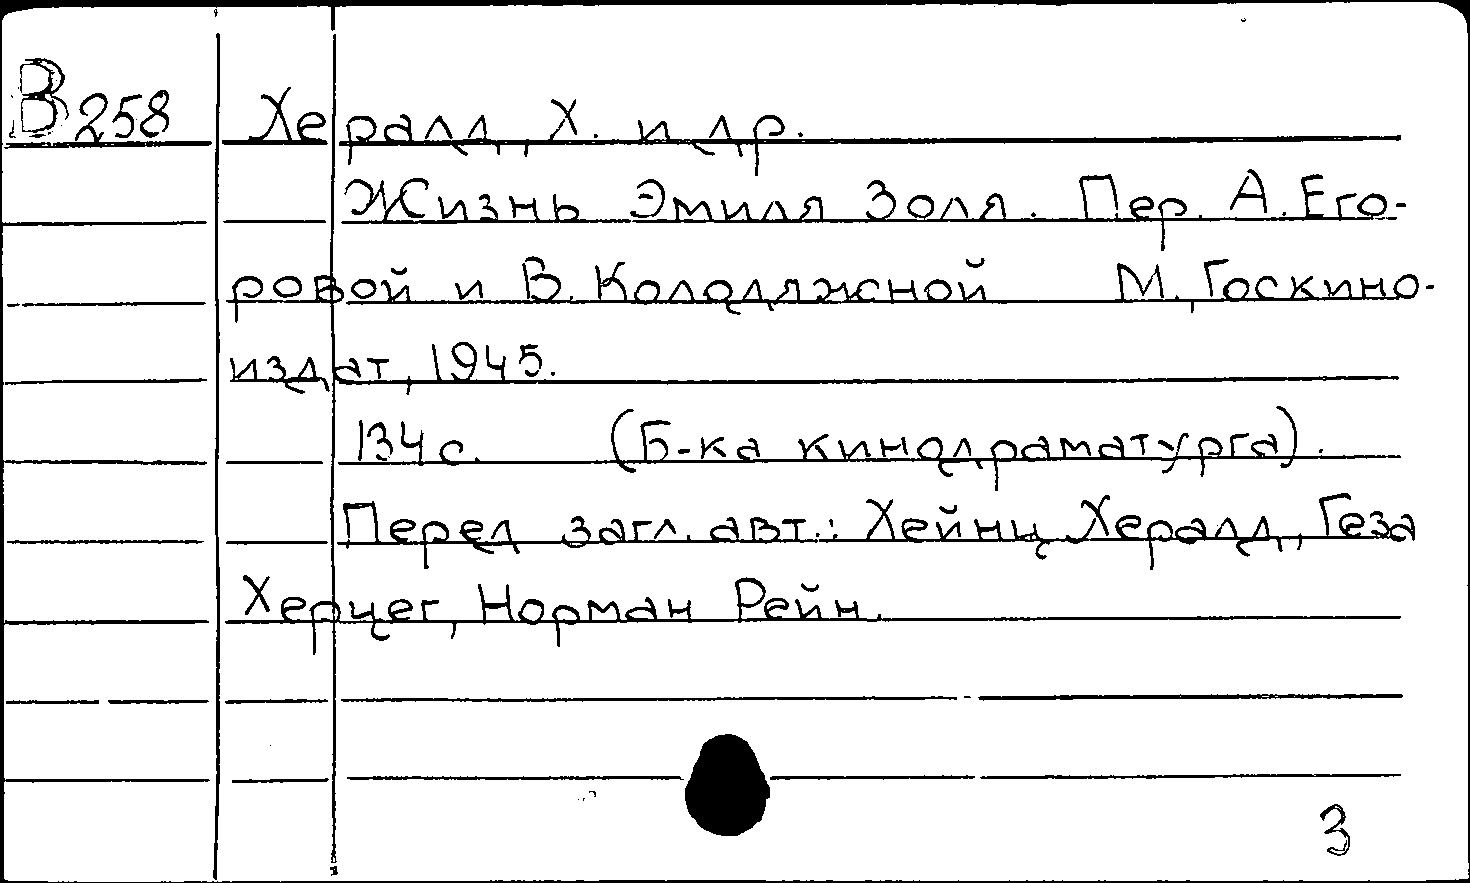 В258 Хералд, Х. и др.
Жизнь Эмиля Золя. Пер. А. Его-
ровой и В. Колодяжной М., Госкино-
издат, 1945.
134 с. (Б-ка кинодраматурга).
Перед загл. авт.: Хейнц Хералд, Геза
Херцег, Норман Рейн.
3